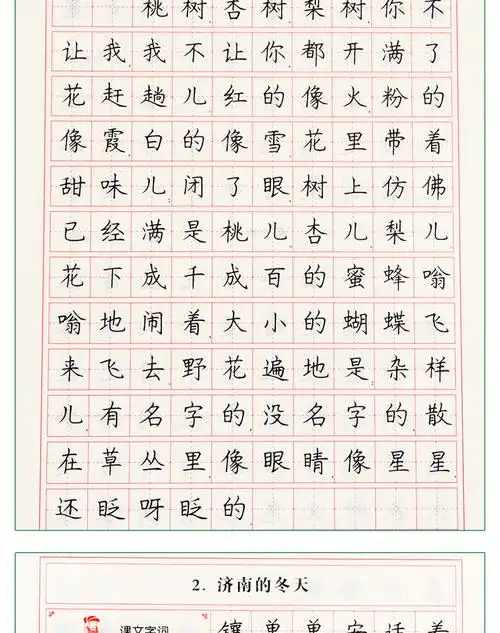 桃树杏树梨树你不
让我我不让你都开满了
花赶趟儿红的像火粉的
像霞白的像雪花里带着
甜味儿闭了眼树上仿佛
已经满是桃儿杏儿梨儿
花下成千成百的蜜蜂嗡
嗡地闹着大小的蝴蝶飞
来飞去野花遍地是杂样
儿有名字的没名字的散
在草丛里像眼睛像星星
还眨呀眨的
2. 济南的冬天
课文字词
镶单单安适着